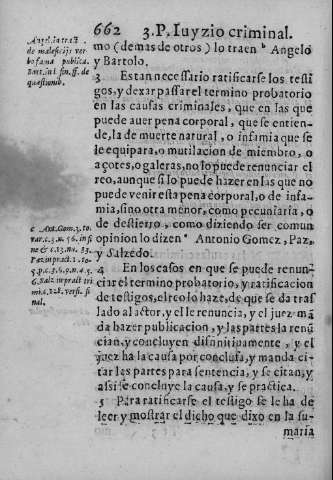 662 3.P. Iuyzio criminal.
Angel. in tract.
de maleficijs ver-
bo fama publica.
Bart. in l. fin. ff. de
quæstionib.
mo (demas de otros) lo traen b Angelo
y Bartolo.
3 Es tan necessario ratificarse los testi
gos, y dexar passar el termino probatorio
en las causas criminales, que en las que
puede auer pena corporal, que se entien-
de, la de muerte natural, o infamia que se
le equipara, o mutilacion de miembro, o
açotes, o galeras, no lo puede renunciar el
reo, aunque si lo puede hazer en las que no
puede venir esta pena corporal, o de infa-
mia, sino otra menor, como pecuniaria, o
de destierro, como diziendo ser comun
opinion lo dizen c Antonio Gomez, Paz,
y Salzedo.
c Ant. Gom. 3. to.
var. c. 3. n. 56. in fi
ne & c. 13. nu. 33.
Paz in pract. 1. to.
5. p. c. 3. §. 9. n. 4. 5.
6. Salz. in pract. cri
mi. c. 128. versi. fi
nal.
4 En los casos en que se puede renun-
ciar el termino probatorio, y ratificacion
de testigos, el reo lo haze, de que se da tras
lado al actor, y el le renuncia, y el juez má
da hazer publicacion, y las partes la renū
cian, y concluyen difinitiuamente, y el
juez ha la causa por conclusa, y manda ci-
tar las partes para sentencia, y se citan, y
assi se concluye la causa, y se practica.
5 Para ratificarse el testigo se le ha de
leer y mostrar el dicho que dixo en la su-
maria